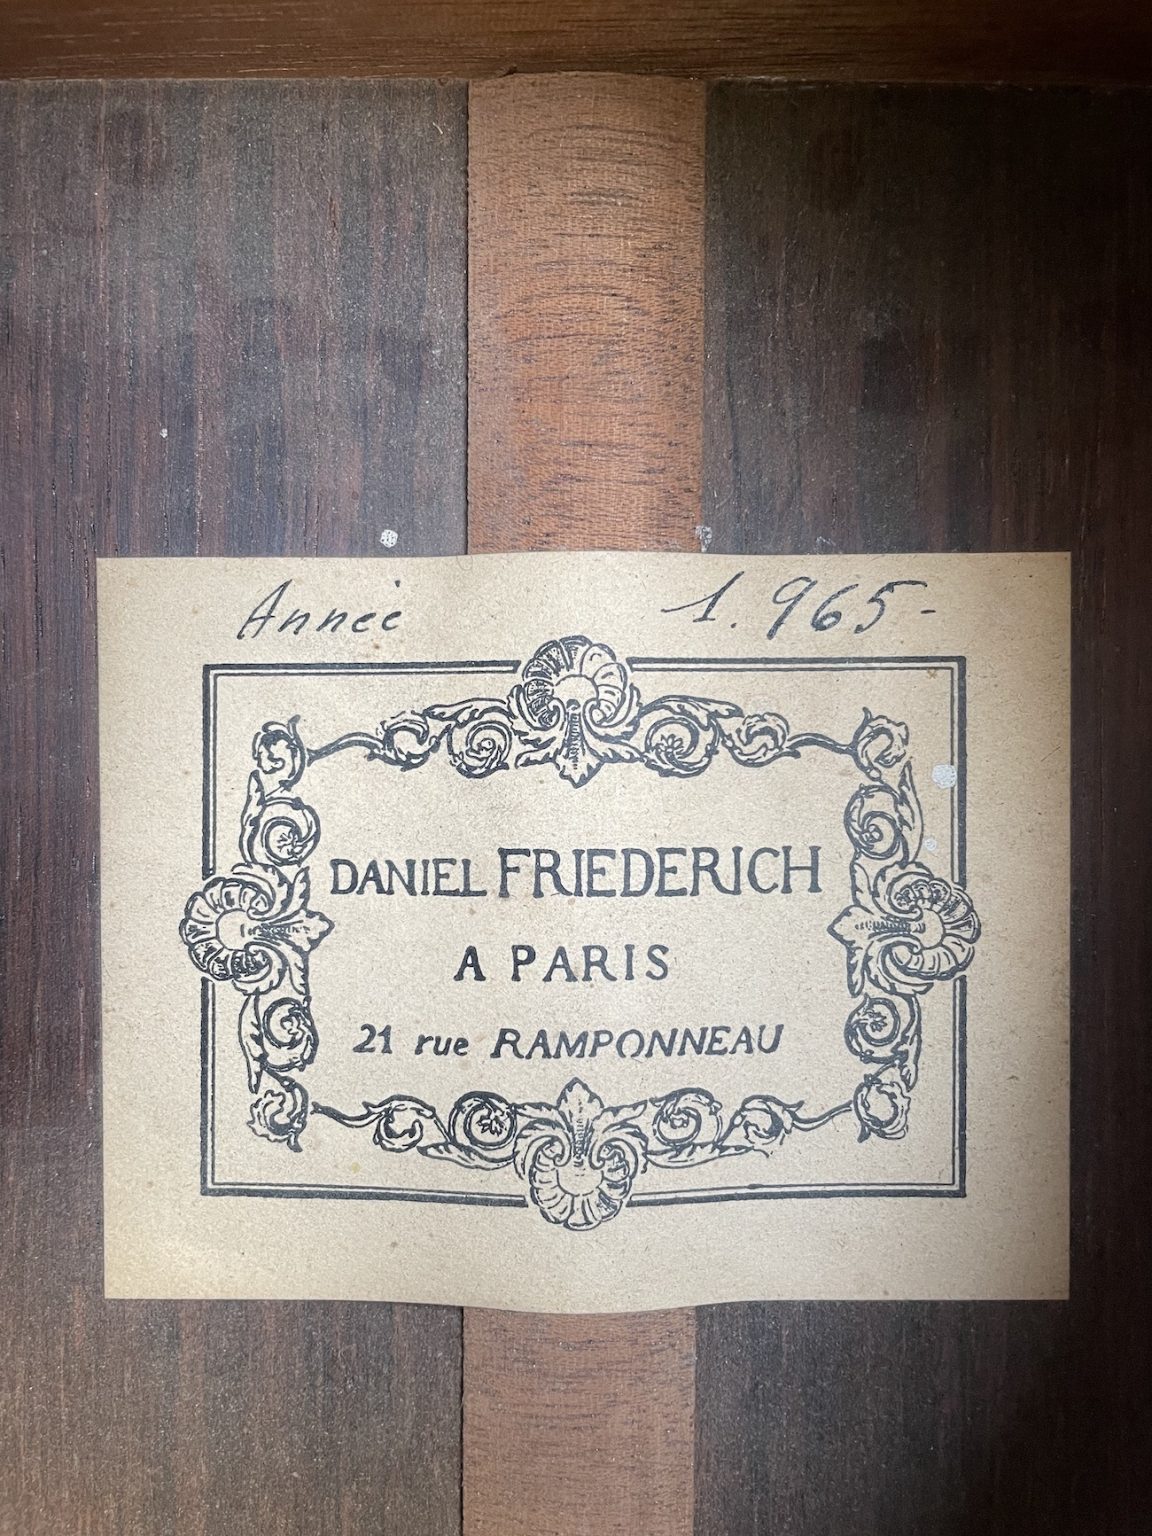 Année 1.965-
DANIEL FRIEDERICH
A PARIS
21 rue RAMPONNEAU